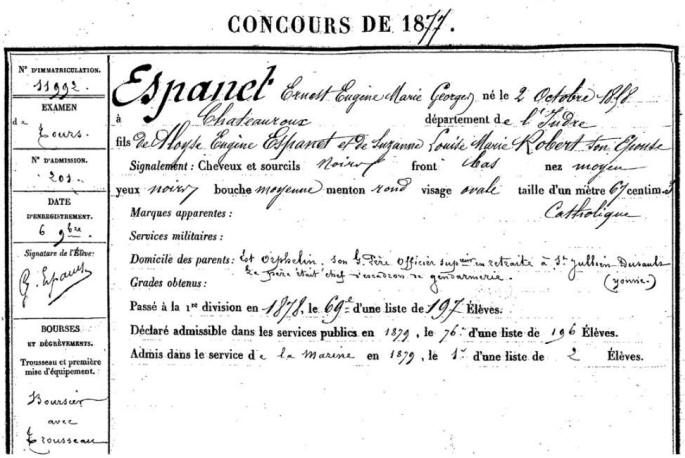 CONCOURS DE 1877.
N° D'IMMATRICULATION.
11992.
EXAMEN
de
Tours.
N° D'ADMISSION.
201
DATE
D'ENREGISTREMENT.
6 9bre
Signature de l'Élève:
G. Espanet
BOURSES
ET DÉGRÈVEMENTS.
Trousseau et première
mise d'équipement.
Boursier
avec
Trousseau
Espanet Ernest Eugène Marie Georges né le 2 Octobre 1858
à Chateauroux département de l'Indre
fils de Aloyse Eugène Espanet et de Suzanne Louise Marie Robert son Epouse
Signalement: Cheveux et sourcils noirs front bas nez moyen
yeux noirs bouche moyenne menton rond visage ovale taille d'un mètre 67 centim
Marques apparentes: Catholique
Services militaires:
Domicile des parents: est Orphelin. son G. Père Officier supieur en retraite à St Jullien Dusault
Le père était chef d'escadron de gendarmerie. (yonne).
Grades obtenus:
Passé à la 1re division en 1878, le 69e d'une liste de 197 Élèves.
Déclaré admissible dans les services publics en 1879, le 76e d'une liste de 196 Élèves.
Admis dans le service de la Marine en 1879, le 1er d'une liste de 2 Élèves.